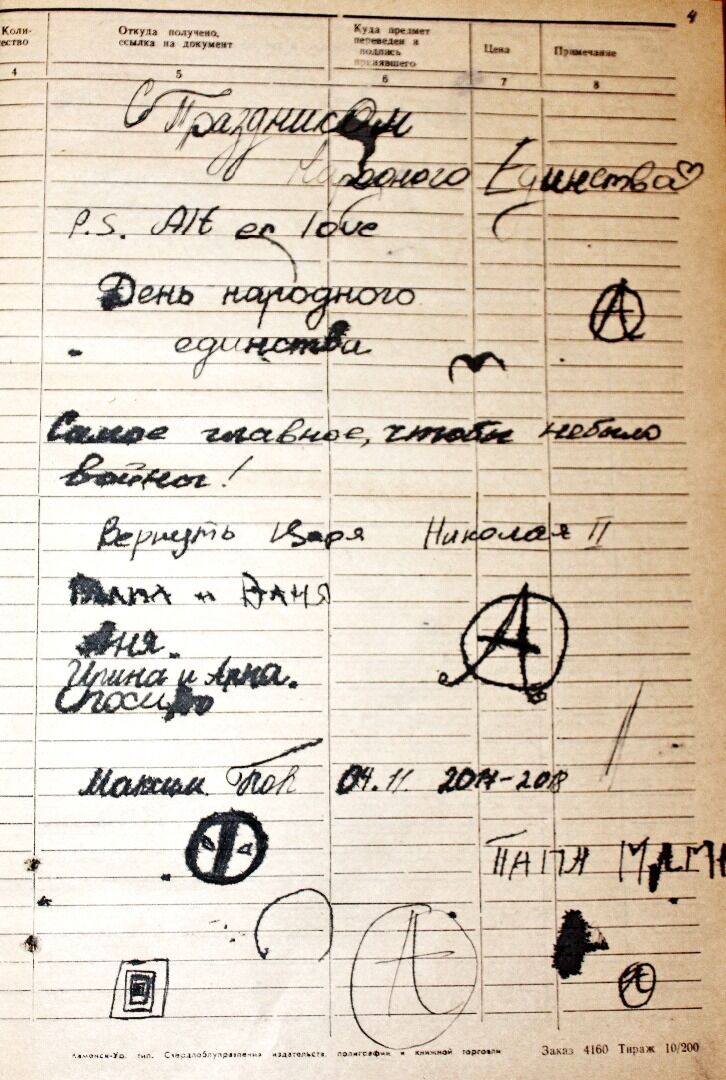 4
Коли-
чество
Откуда получено,
ссылка на документ
Куда предмет
переведен и
подпись
принявшего
Цена
Примечание
4 5 6 7 8
С Праздником
Народного Единства
P.S. Alt er love
День народного
единства
А
Самое главное, чтобы небыло
войны!
Вернуть Царя Николая II
и Даня
А
Аня.
Ирина и Арина.
Максим 04.11. 2017-2018
ПАПА МАМА
А
А
Каменск-Ур. тип. Свердлоблуправления издательств, полиграфии и книжной торговли Заказ 4160 Тираж 10/200